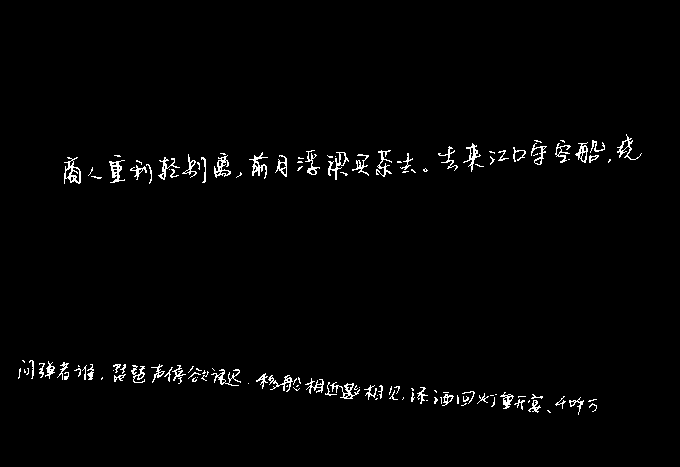 商人重利轻别离,前月浮梁买茶去。去来江口守空船,绕
问弹者谁,琵琶声停欲语迟.移船相近邀相见,添酒回灯重开宴、千呼万